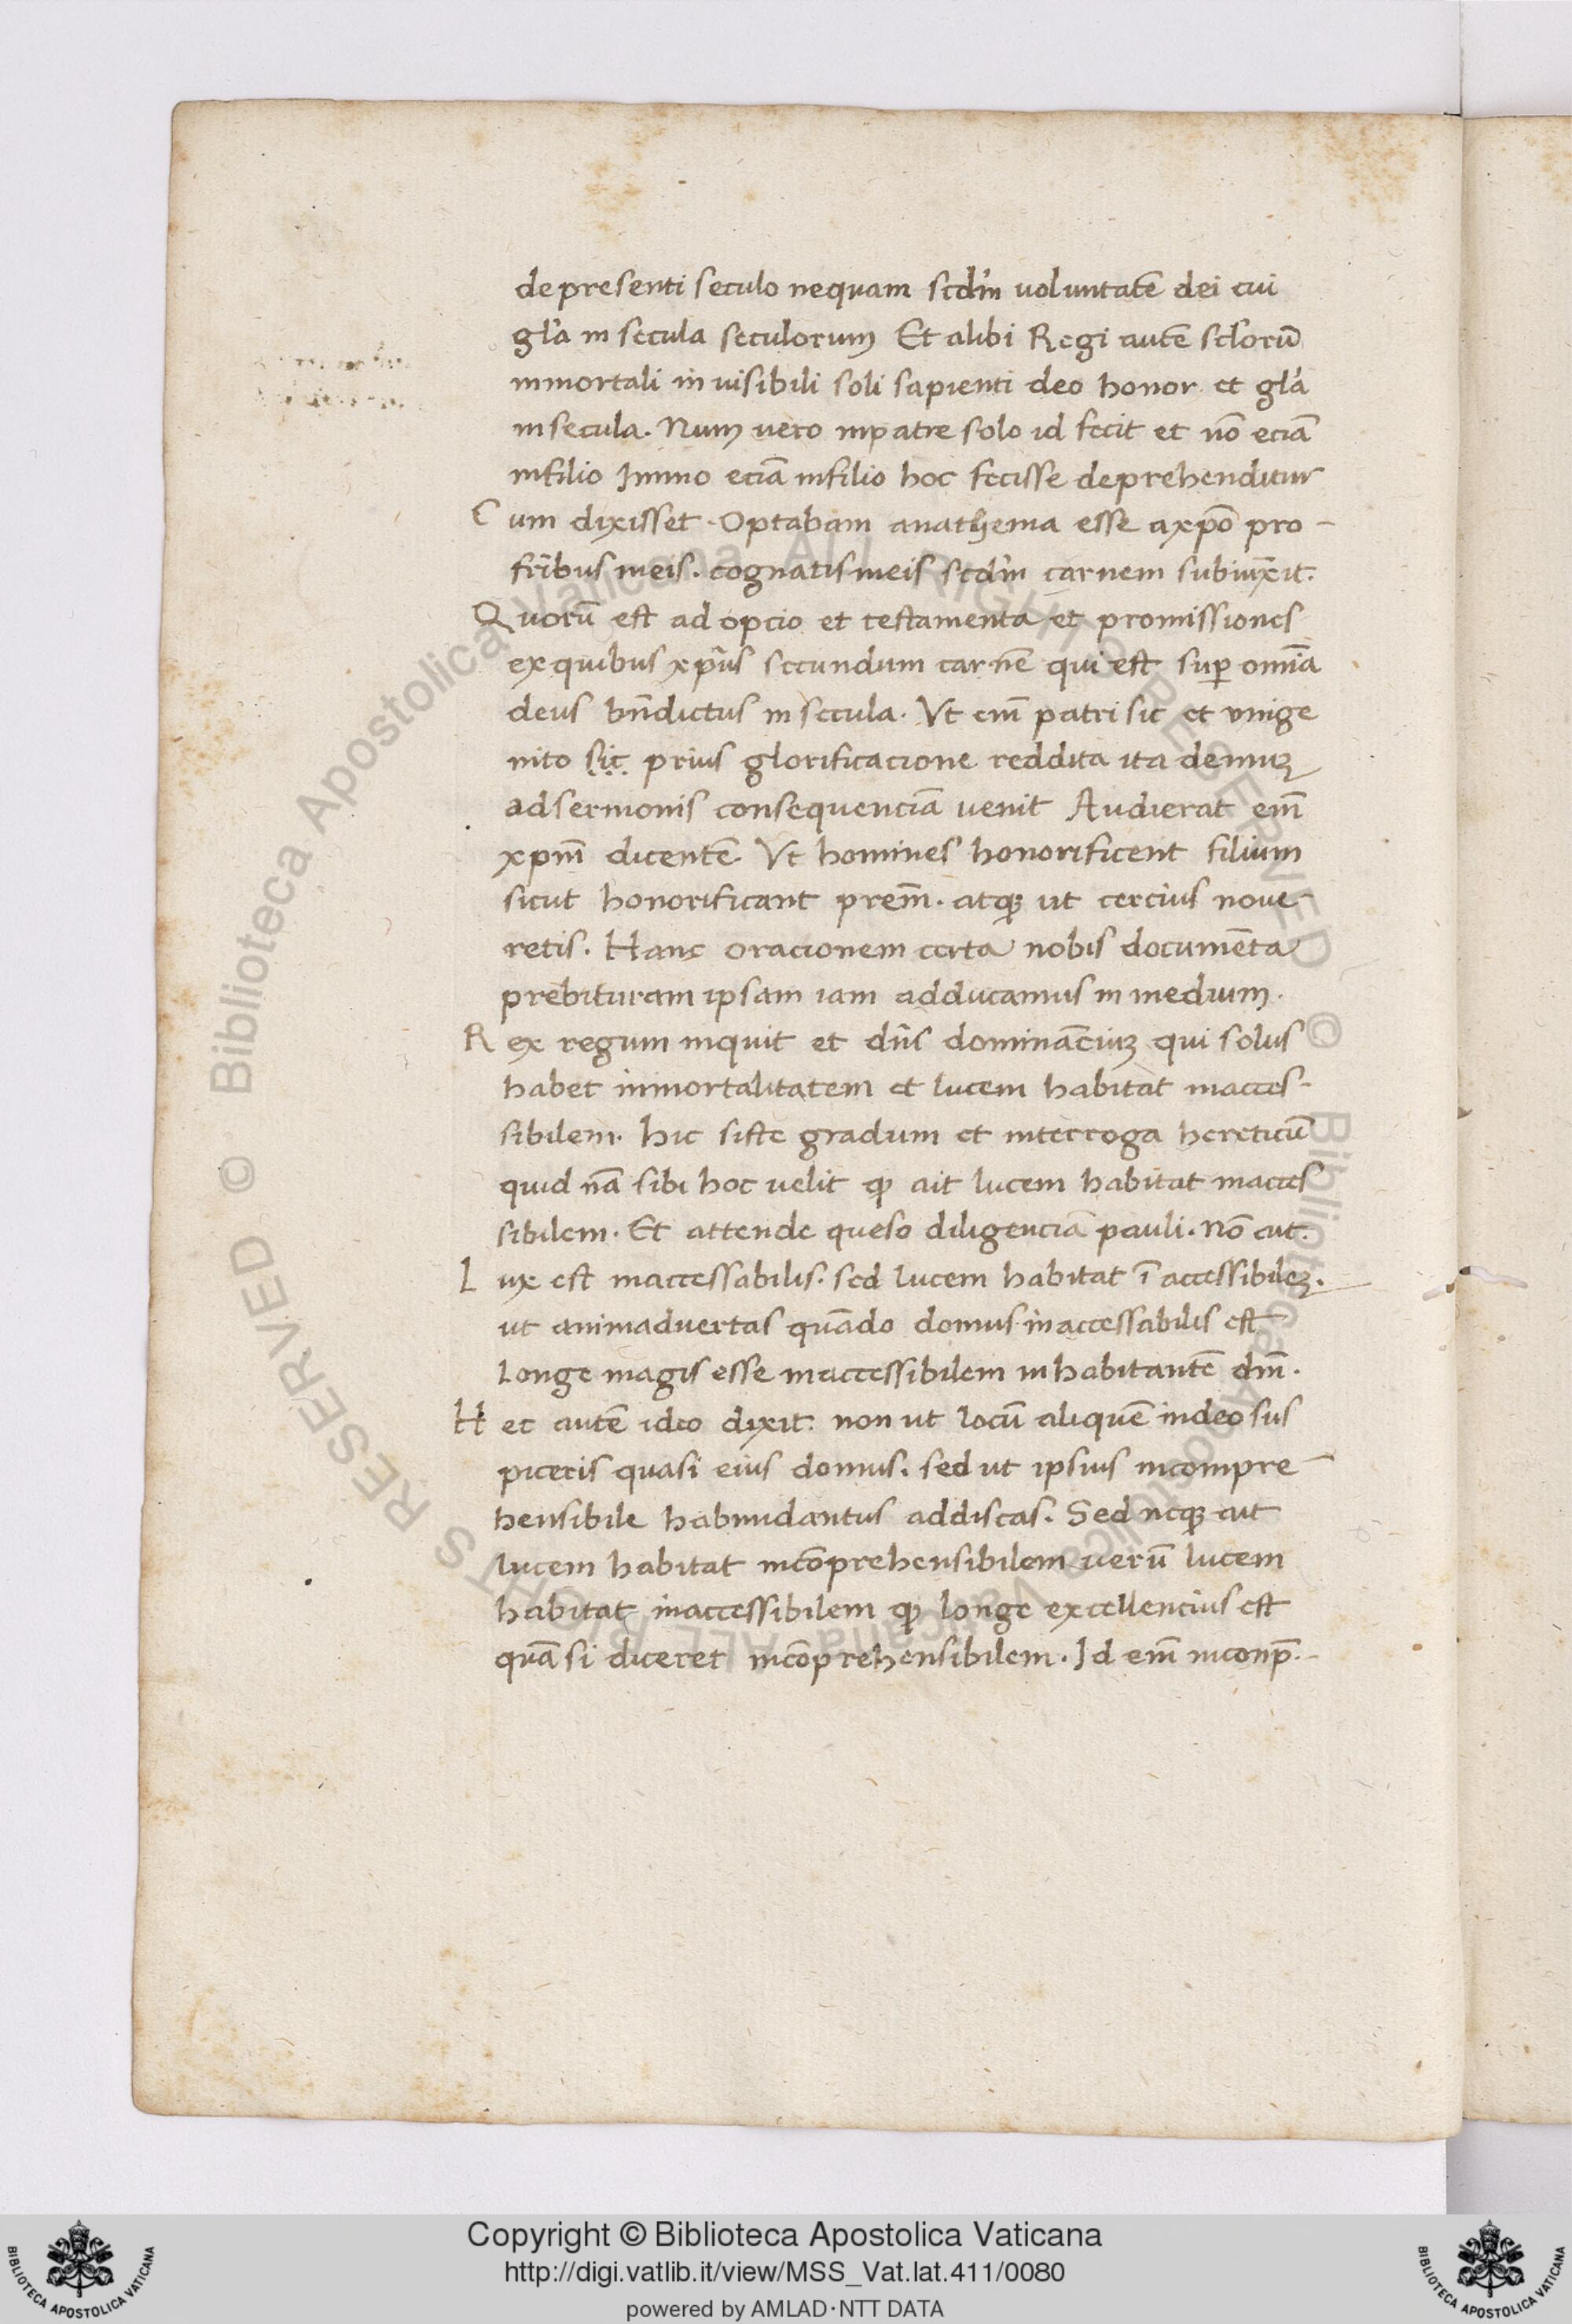 de presenti seculo nequam scdm̄ voluntatē dei cui
gl'a in secula seculorum Et alibi Regi autē sclorū
inmortali invisibili soli sapienti deo honor et gl'a
in secula. Num vero in patre solo id fecit et nō eciā
in filio Immo eciā in filio hoc fecisse deprehenditur
Cum dixisset. Optabam anathema esse a xp̄o pro-
fr̄ibus meis. cognatis meis scdm̄ carnem subiunxit.
Quorū est adopcio et testamenta et promissiones
ex quibus xp̄us secundum carnē qui est sup̱ om̄ia
deus bn̄dictus in secula. Vt em̄ patri sic et unige
nito sic prius glorificacione reddita ita demuꝫ
ad sermonis consequenciā venit Audierat em̄
xpm̄ dicentē. Vt homines honorificent filium
sicut honorificant prem̄. atqꝫ ut cercius nove-
retis. Hanc oracionem certa nobis documēta
prebituram ipsam iam adducamus in medium.
Rex regum inquit et dn̄s dominanciuꝫ qui solus
habet inmortalitatem et lucem habitat inacces-
sibilem. hic siste gradum et interroga hereticū
quid nā sibi hoc velit qꝫ ait lucem habitat inacces
sibilem. Et attende queso diligenciā pauli. Nō ait.
Lux est inaccessabilis. sed lucem habitat ī accessibileꝫ.
ut animadvertas quādo domus inaccessabilis est
longe magis esse inaccessibilem inhabitantē dm̄.
Hec autē ideo dixit. non ut locū aliquē in deo sus
piceris quasi eius domus. sed ut ipsius incompre-
hensibile habundantius addiscas. Sed neqꝫ ait
lucem habitat incōprehensibilem verū lucem
habitat inaccessibilem qꝫ longe excellencius est
quā si diceret incōprehensibilem. Id em̄ inconp̄.-
Copyright © Biblioteca Apostolica Vaticana
http://digi.vatlib.it/view/MSS_Vat.lat.411/0080
powered by AMLAD·NTT DATA